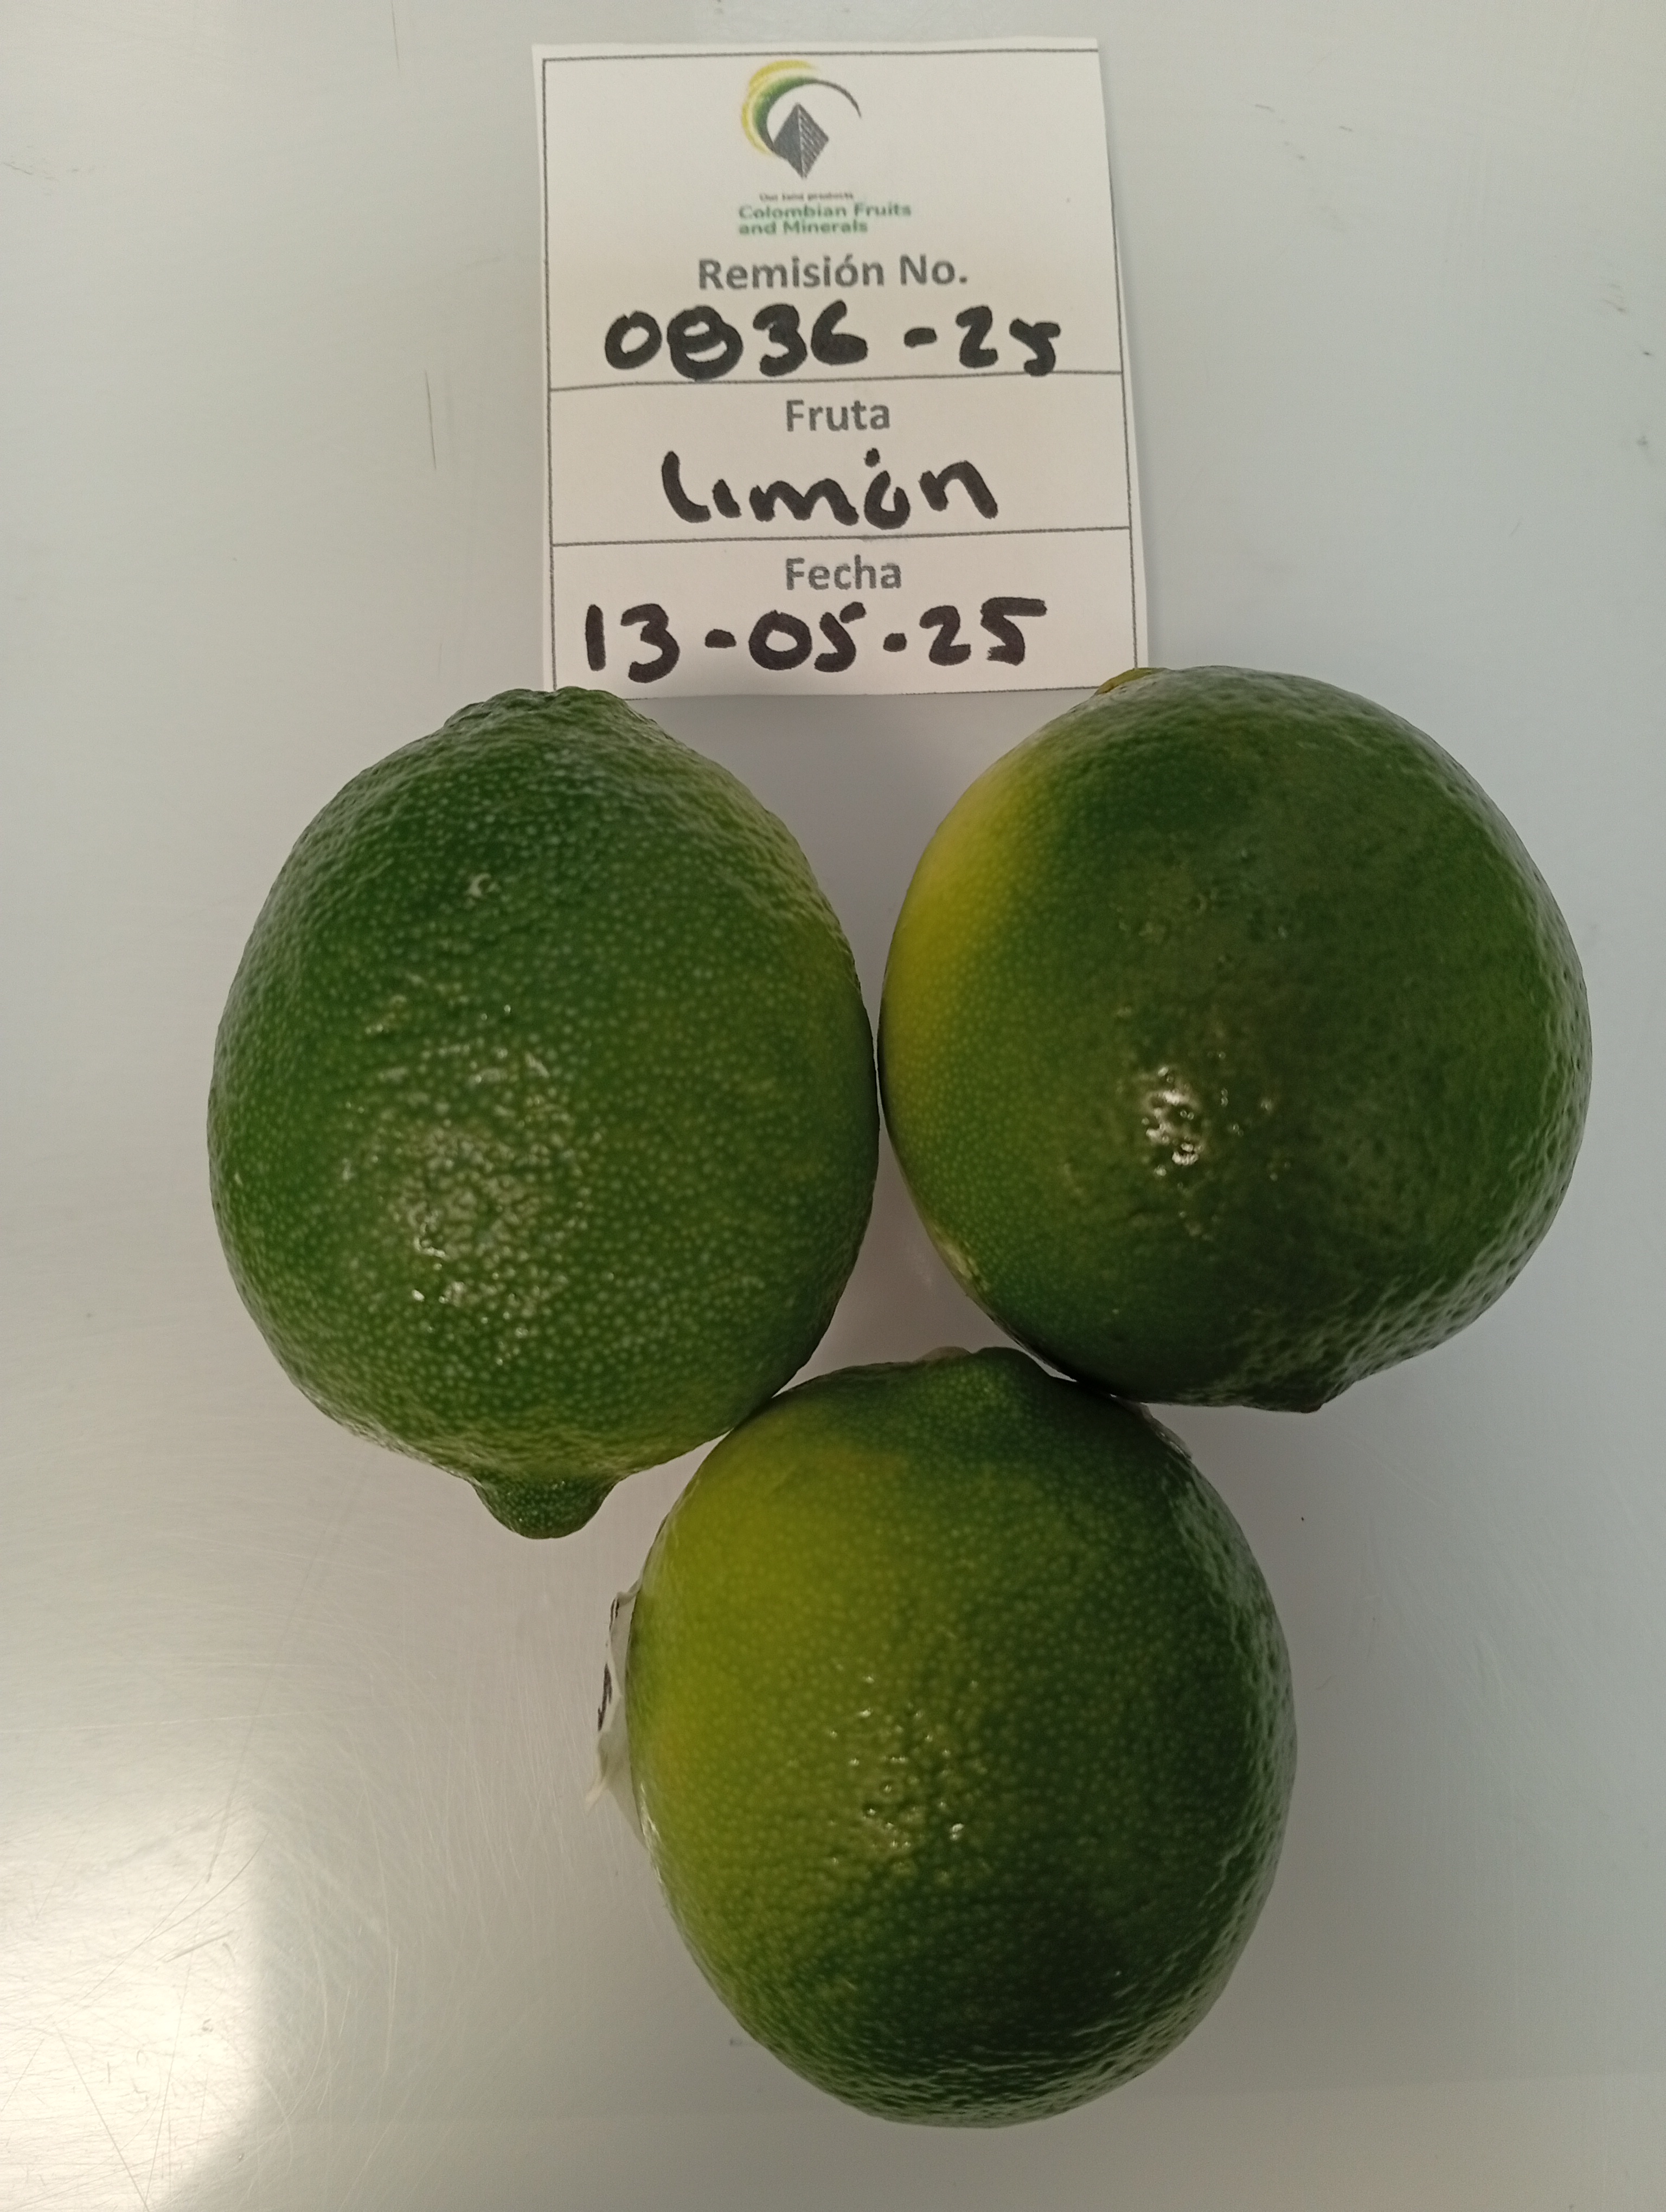 Our land products
Colombian Fruits
and Minerals
Remisión No.
0836-25
Fruta
limón
Fecha
13-05-25